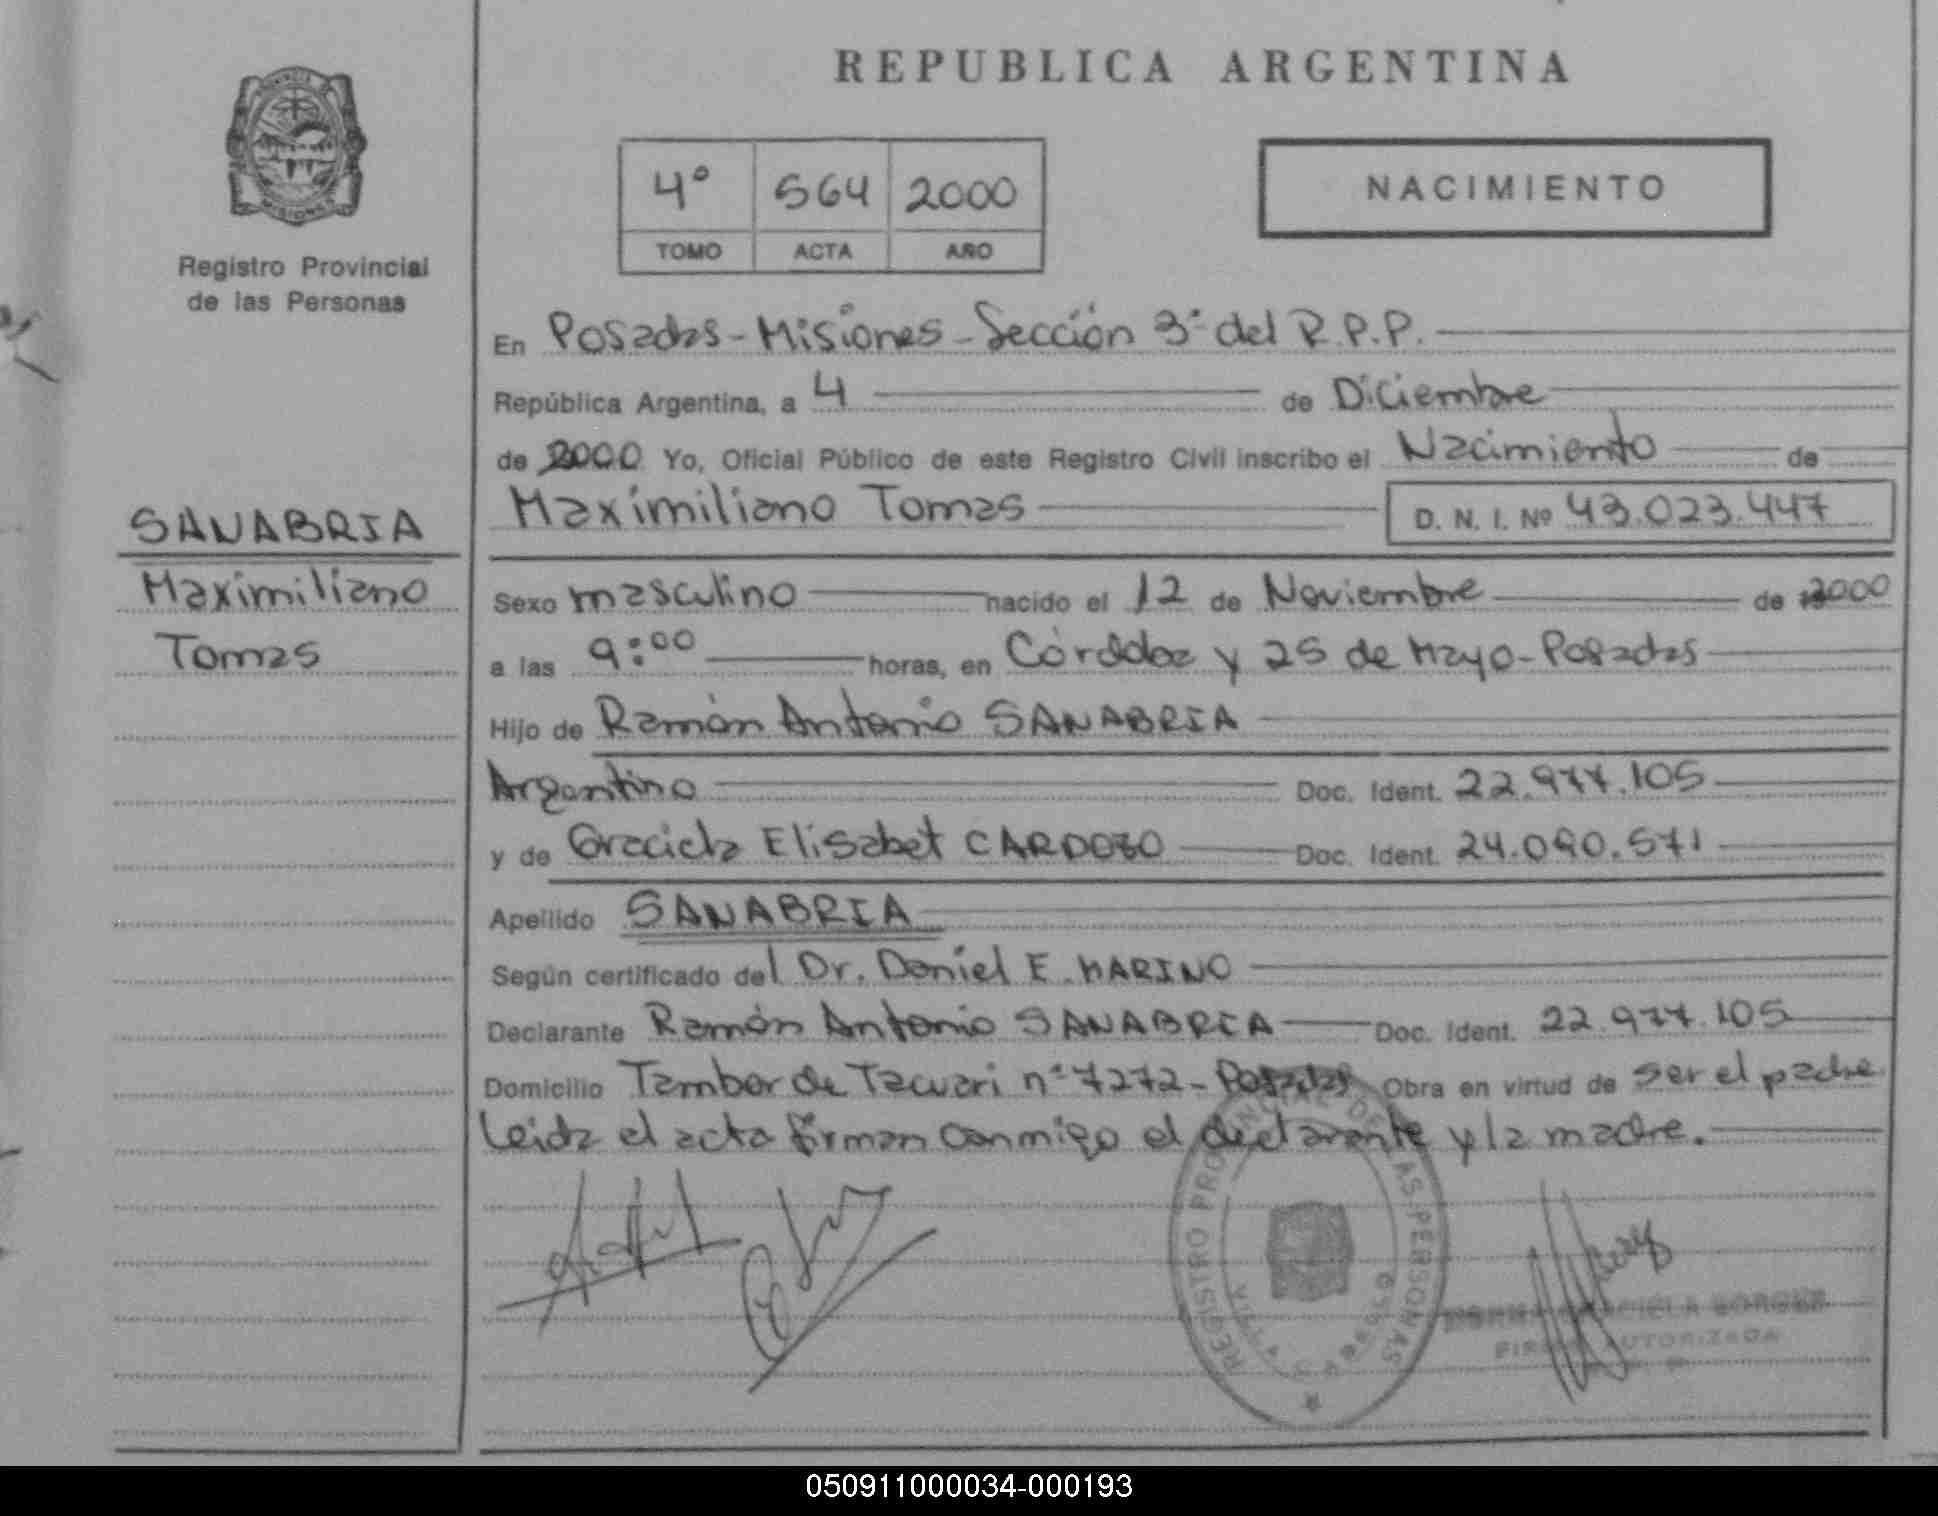 REPUBLICA ARGENTINA
PROVINCIA
MISIONES
Registro Provincial
de las Personas
4º 564 2000
TOMO ACTA AÑO
NACIMIENTO
En Posadas-Misiones-Sección 3ª del R.P.P.
República Argentina, a 4 de Diciembre
de 2000 Yo, Oficial Público de este Registro Civil inscribo el Nacimiento de
Maximiliano Tomas D. N. I. Nº 43.023.447
SANABRIA
Maximiliano
Tomas
Sexo masculino nacido el 12 de Noviembre de 2000
a las 9:00 horas, en Córdoba y 25 de Mayo-Posadas
Hijo de Ramón Antonio SANABRIA
Argentino Doc. Ident. 22.977.105
y de Graciela Elisabet CARDOZO Doc. Ident. 24.090.571
Apellido SANABRIA
Según certificado del Dr. Daniel E. MARINO
Declarante Ramón Antonio SANABRIA Doc. Ident. 22.977.105
Domicilio Tambor de Tacuari nº 7272-Posadas Obra en virtud de ser el padre
Leida el acta firman conmigo el declarante y la madre.
REGISTRO PROVINCIAL DE LAS PERSONAS
GRACIELA BORGES
FIRMA AUTORIZADA
050911000034-000193